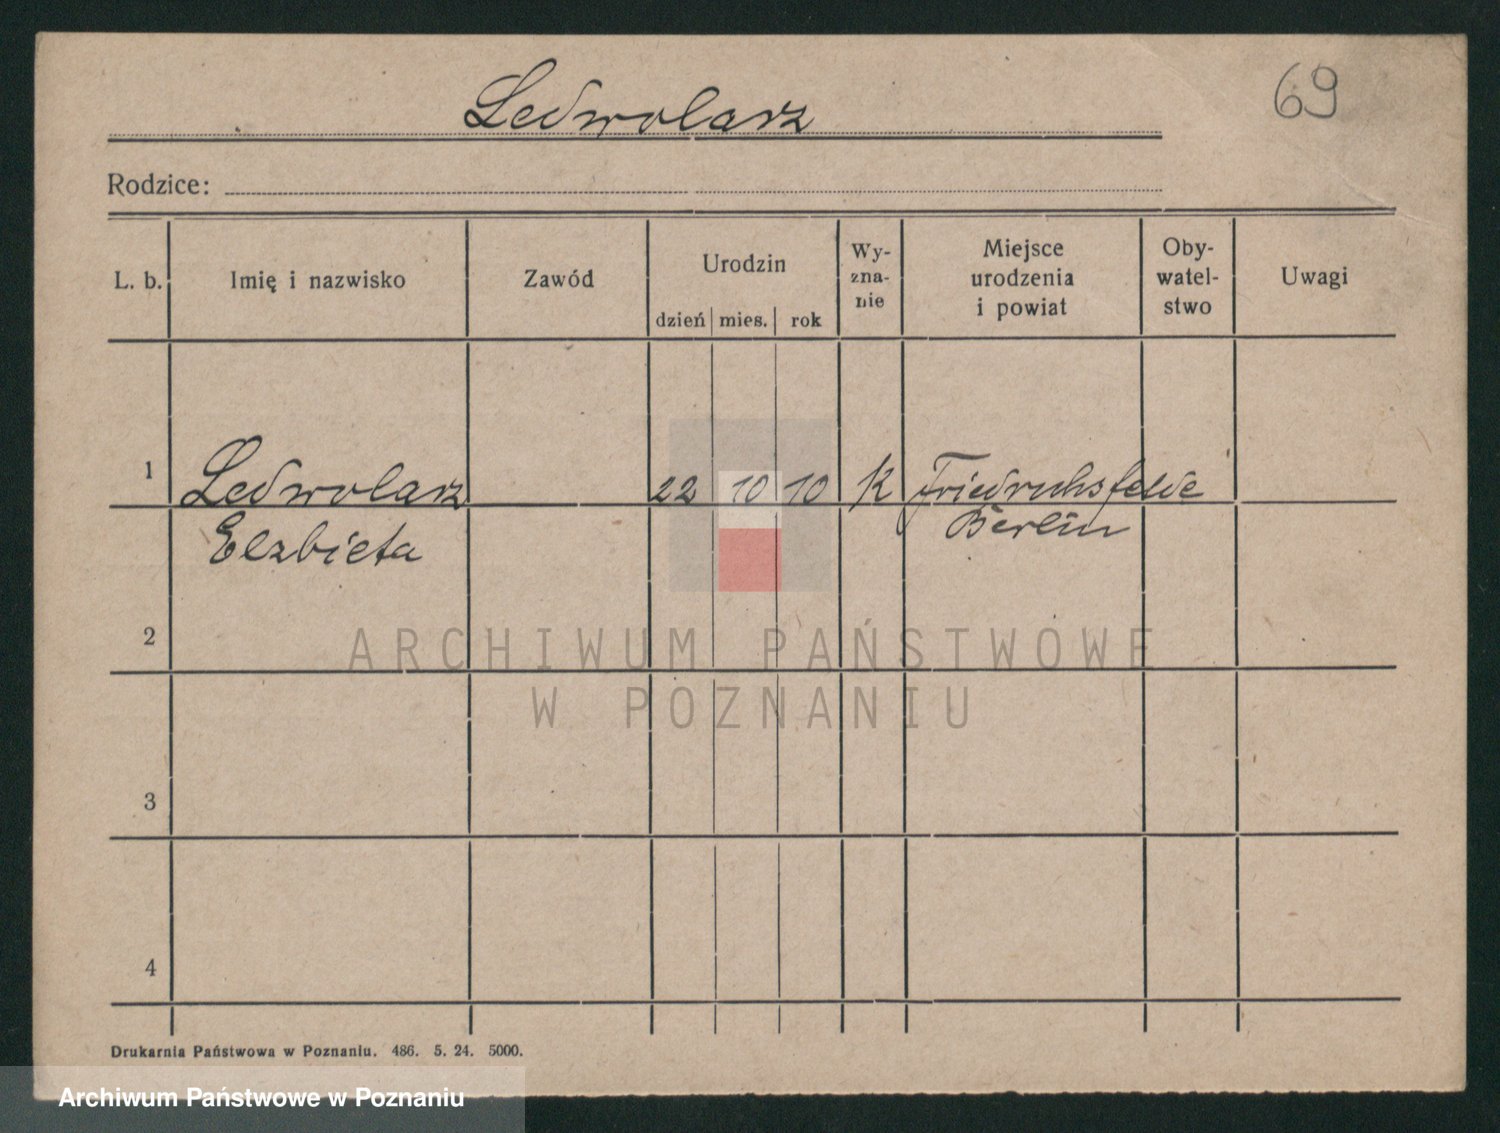 Ledwolarz
69
Rodzice:
L. b.
Imię i nazwisko
Zawód
Urodzin
dzień
mies.
rok
Wy-
zna-
nie
Miejsce
urodzenia
i powiat
Oby-
watel-
stwo
Uwagi
1
Ledwolarz
22
10
10
K
Friedrichsfelde
Elzbieta
Berlin
2
3
4
ARCHIWUM PAŃSTWOWE
W POZNANIU
Drukarnia Państwowa w Poznaniu. 486. 5. 24. 5000.
Archiwum Państwowe w Poznaniu